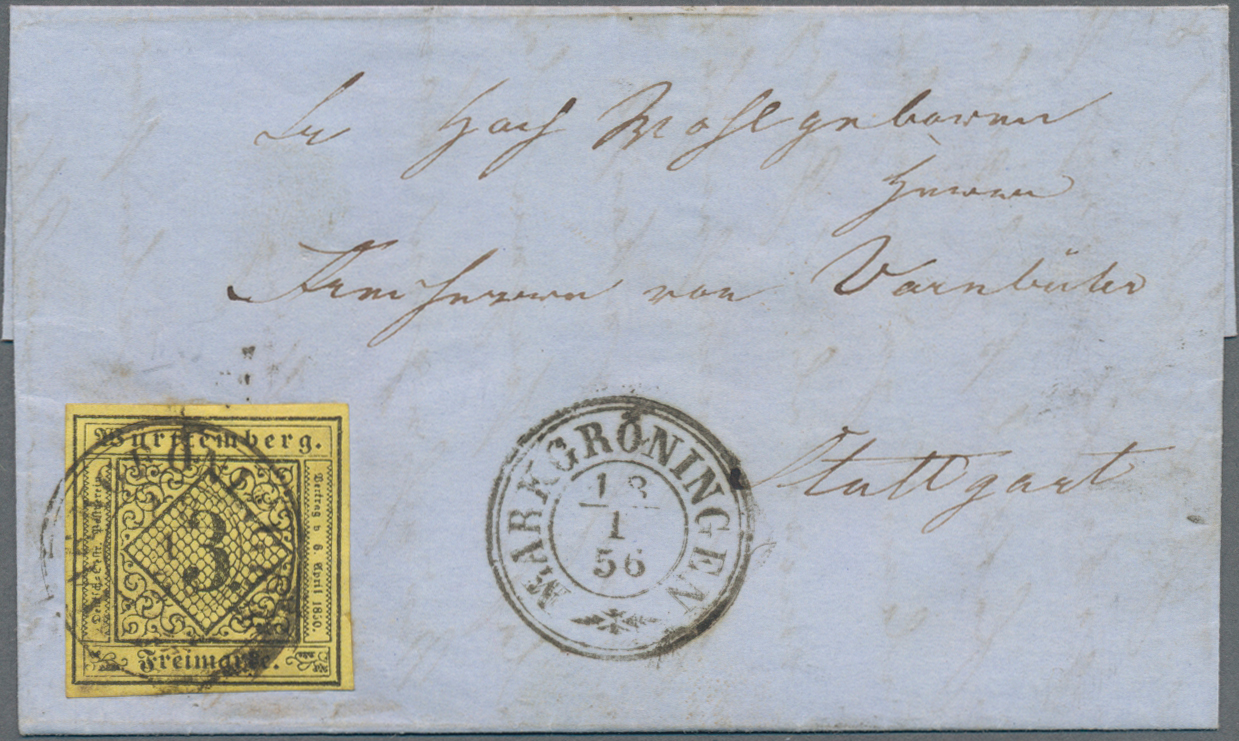 Sr Hoch Wohlgeboren
Herrn
Freiherrn von Varnbüler
Stuttgart
Württemberg.
Deutsch-Östr. Postverein
3
Vertrag v 6. April 1850.
Freimarke.
MARKGRÖNINGEN
18
1
56